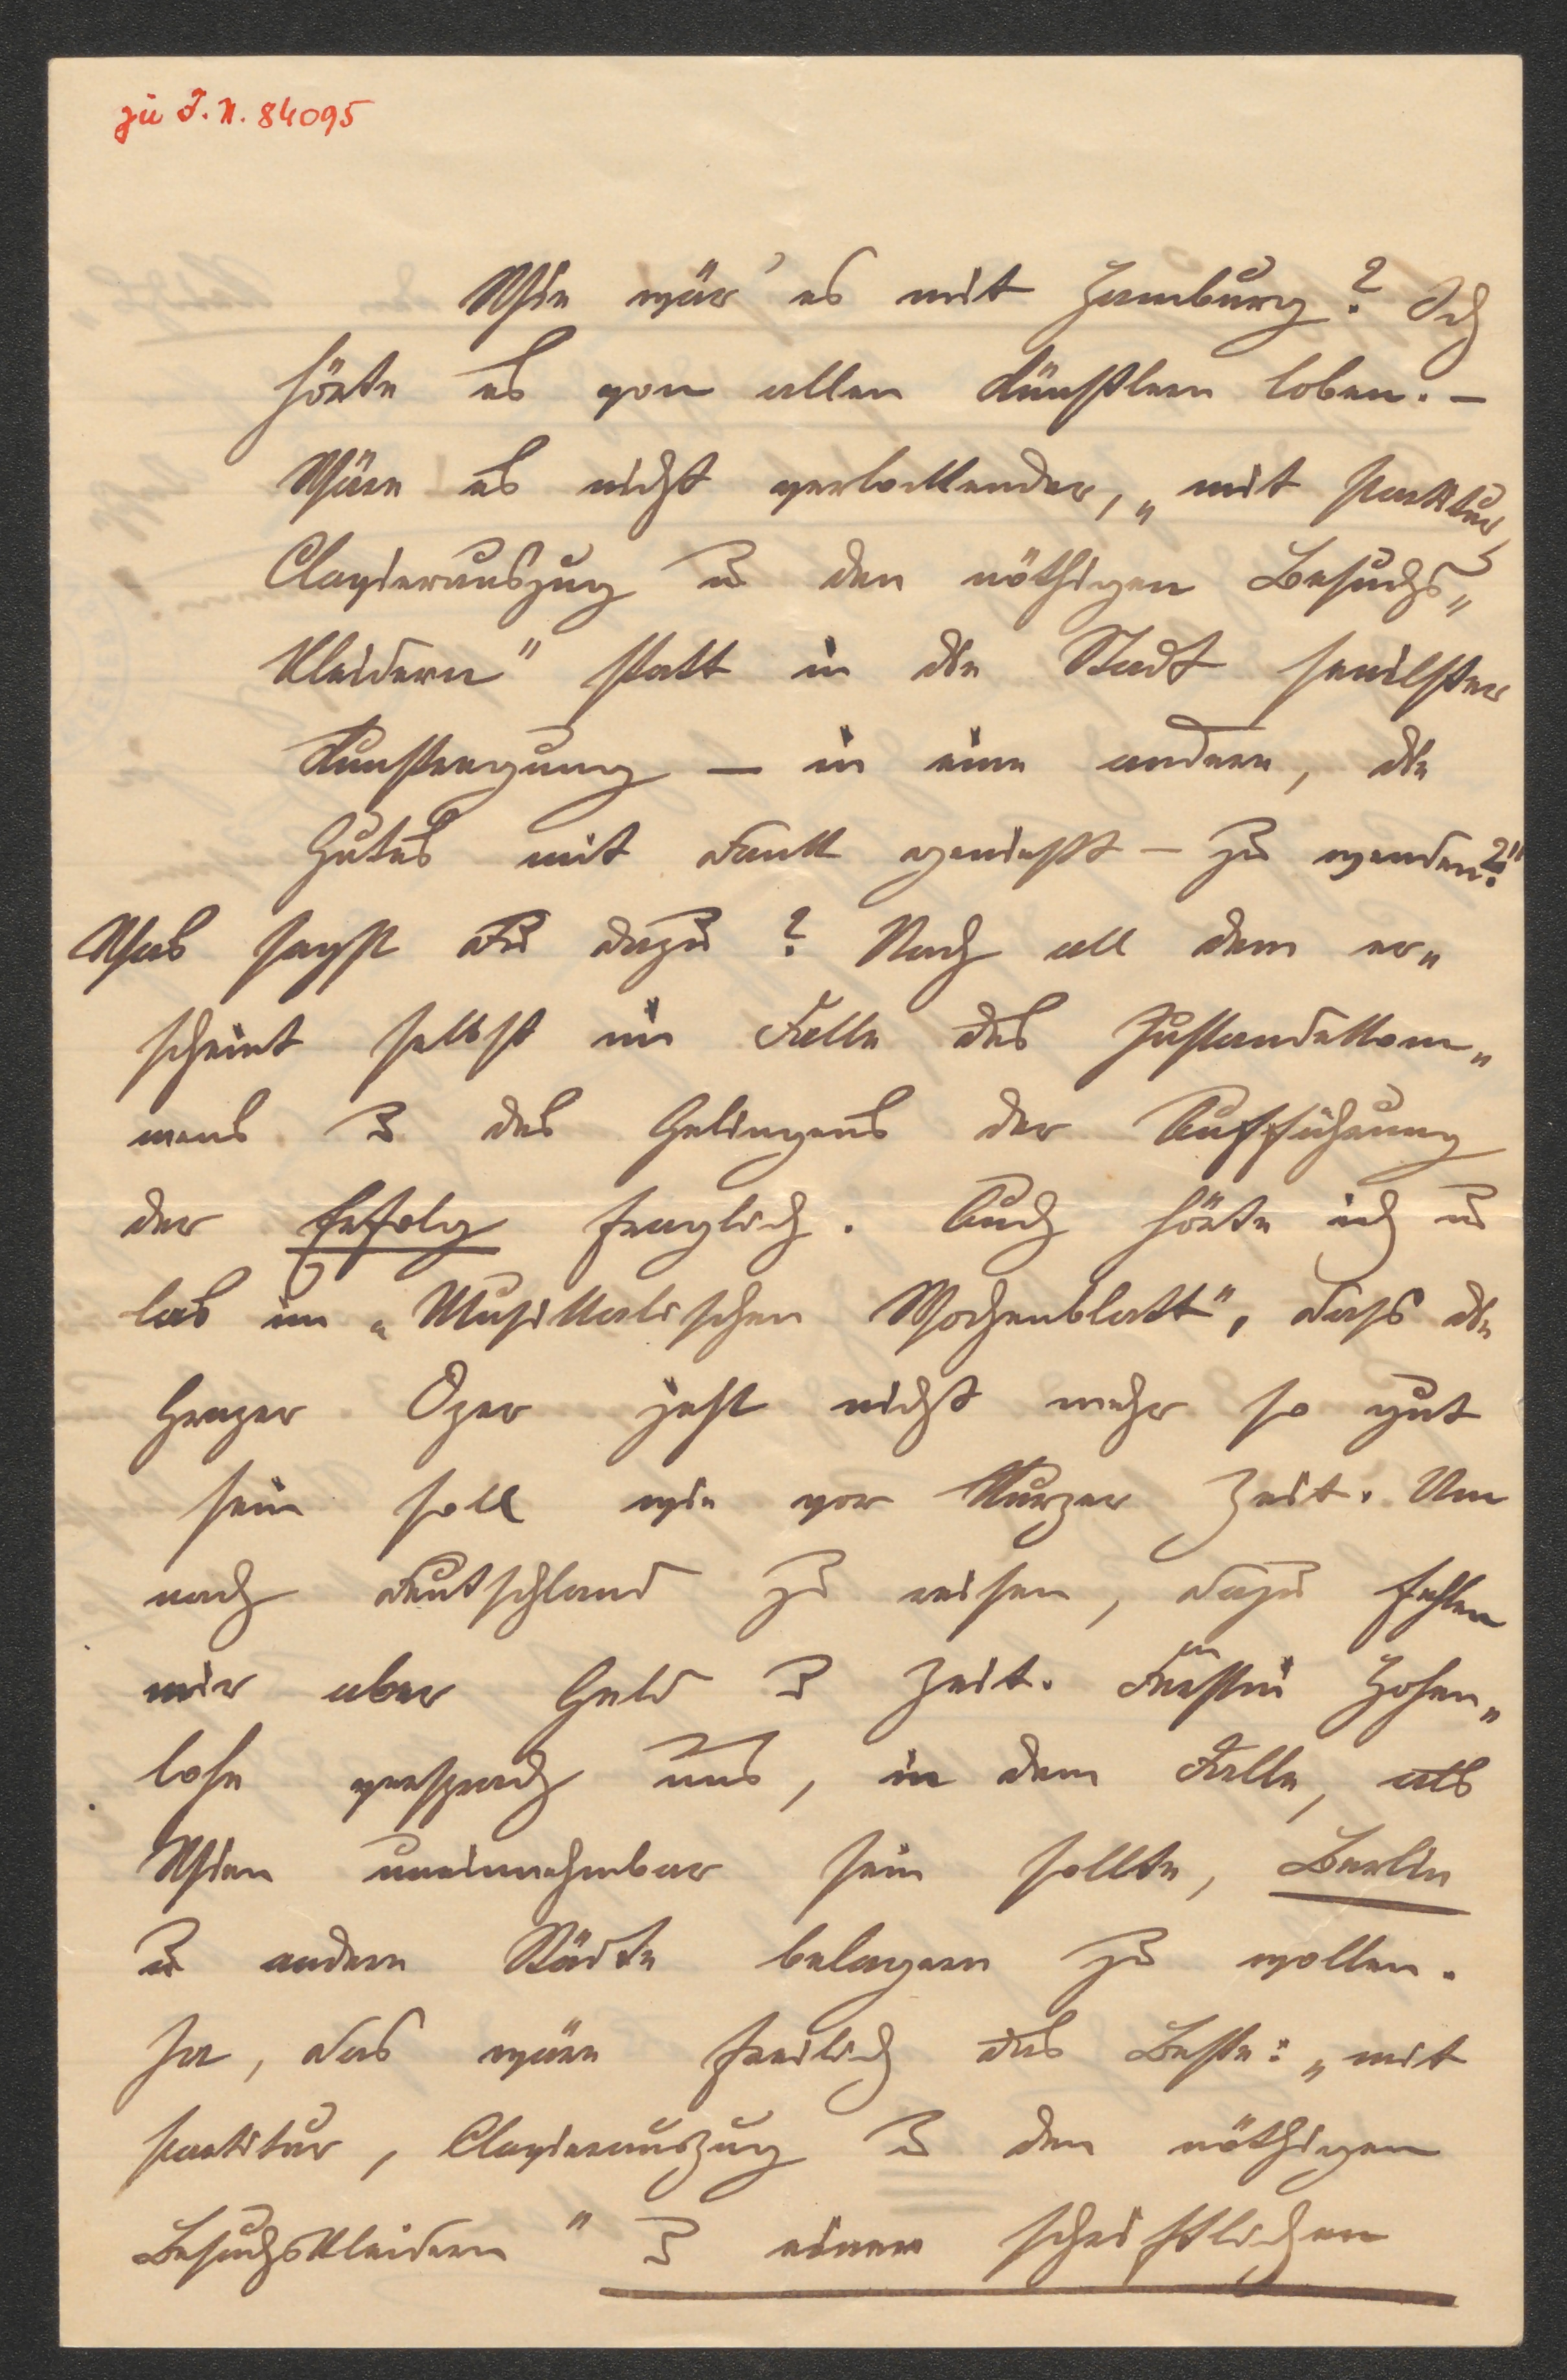 zu I.N. 84095
Wie wär' es mit Hamburg? Ich
hörte es von allen Künstlern loben. –
Wäre es nicht verlockender, „mit Partitur,
Clavierauszug u den nöthigen Besuchs„
kleidern" statt in die Stadt senilster
Kunstregung – in eine andere, die
Gutes mit Dank genießt – zu wenden?"
Was sagst Du dazu? Nach all dem er„
scheint selbst im Falle des Zustandekom„
mens u des Gelingens der Aufführung
der Erfolg fraglich. Auch hörte ich u
las im „Musikalischen Wochenblatt", dass die
Grazer Oper jetzt nicht mehr so gut
sein soll wie vor kurzer Zeit. Um
nach Deutschland zu reisen, dazu fehlen
mir aber Geld u Zeit. Fürstin Hohen„
lohe versprach uns, in dem Falle, als
Wien uneinnehmbar sein sollte, Berlin
u andere Städte belagern zu wollen.
Ja, das wäre freilich das Beste: „mit
Partitur, Clavierauszug u den nöthigen
Besuchskleidern" u einem schriftlichen